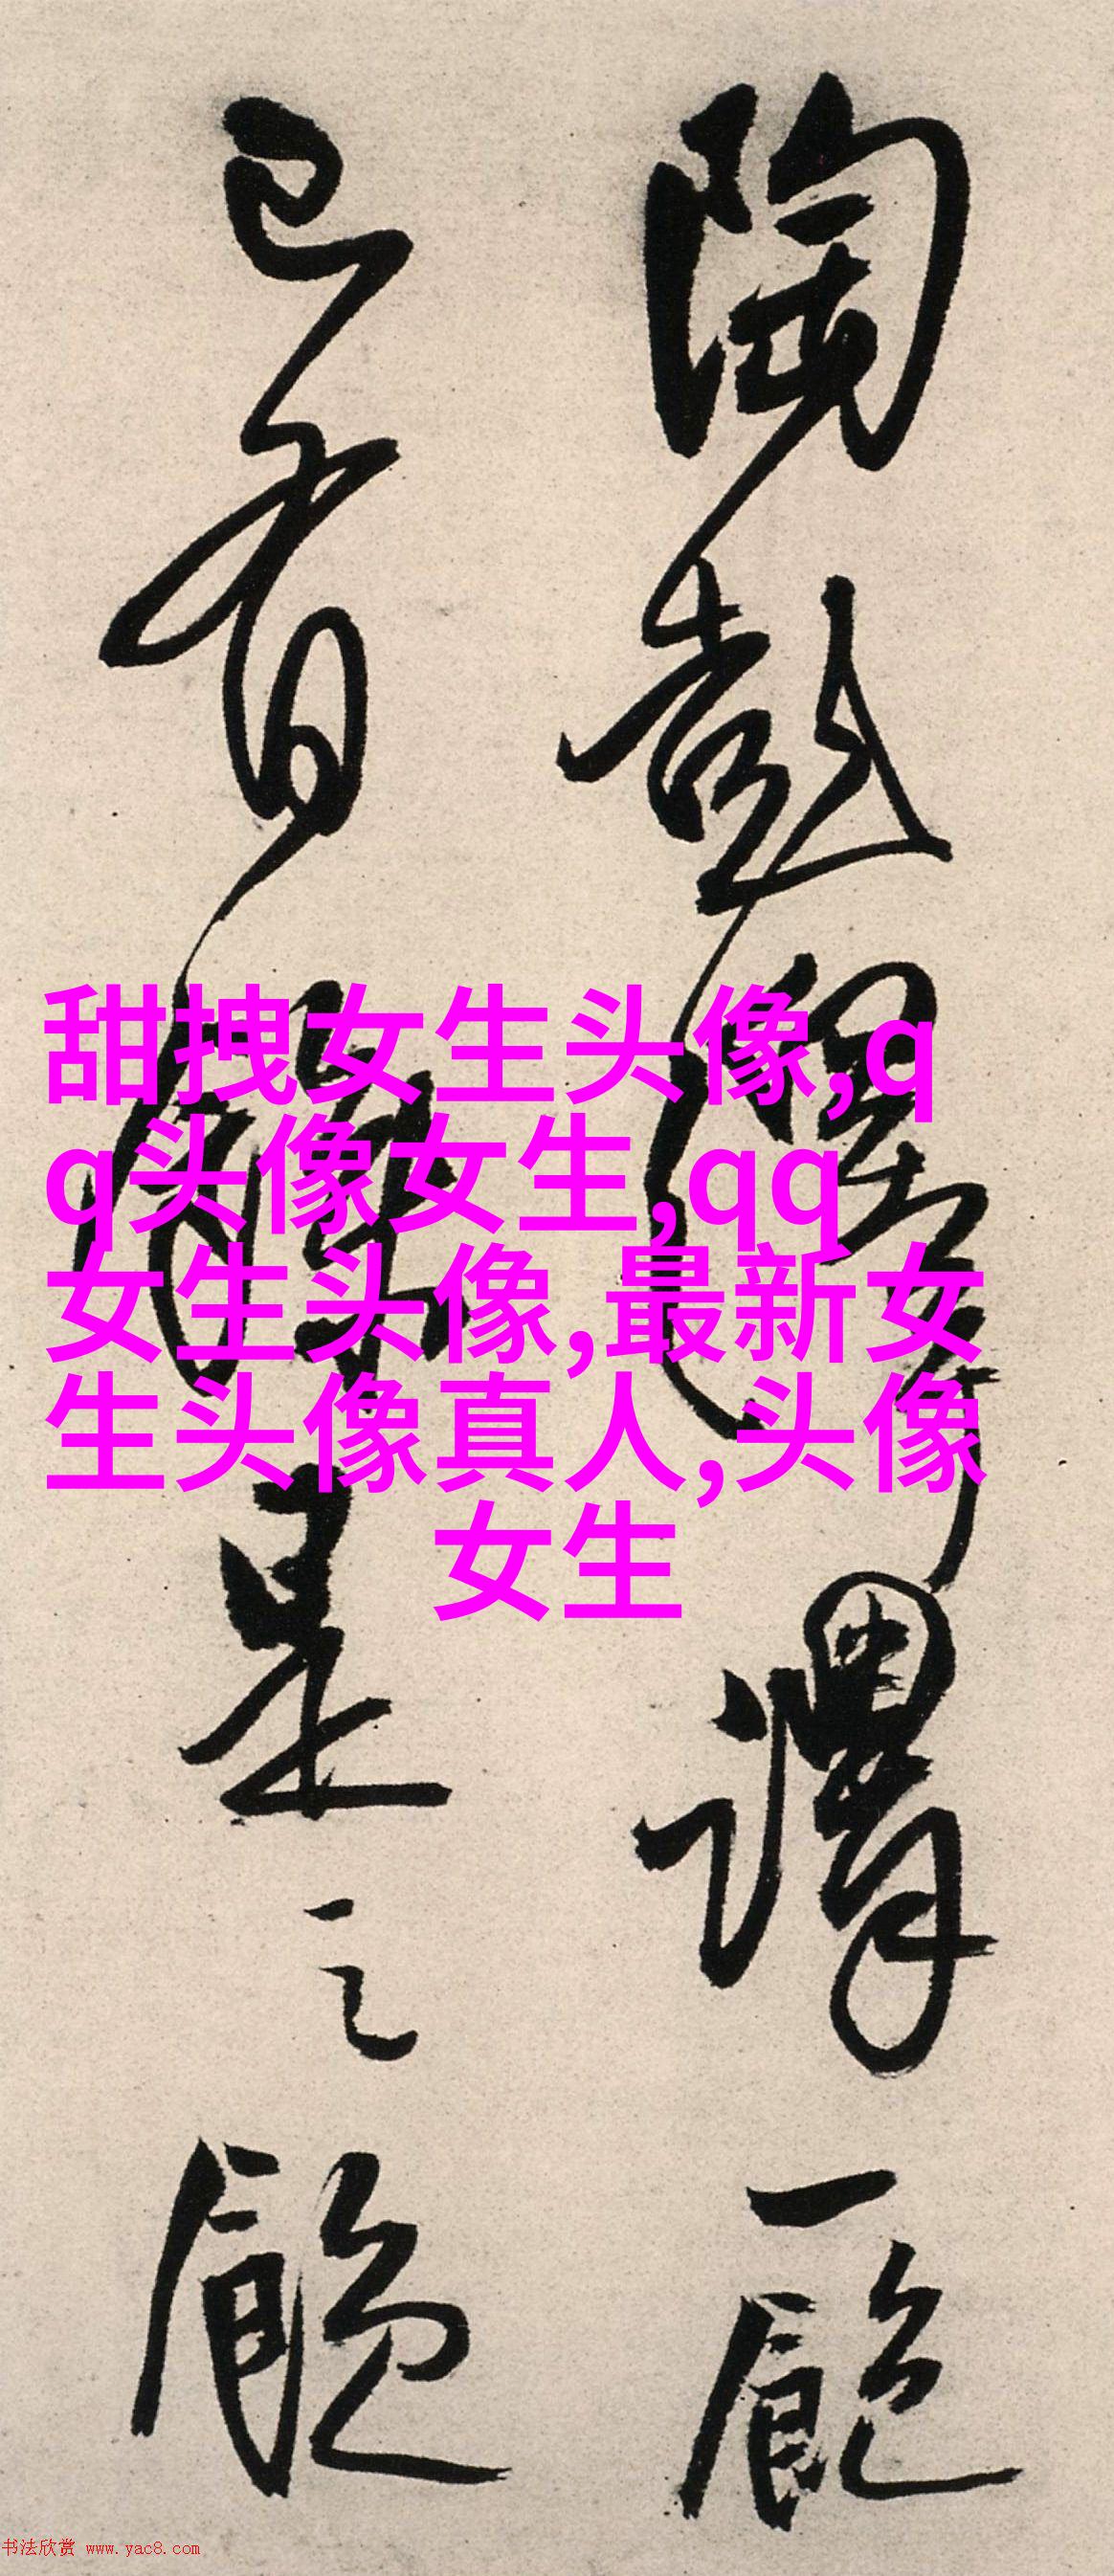 陶彭澤謂一飽
已有餘是之飽
甜拽女生头像,q
q头像女生,qq
女生头像,最新女
生头像真人,头像
女生
书法欣赏 www.yac8.com